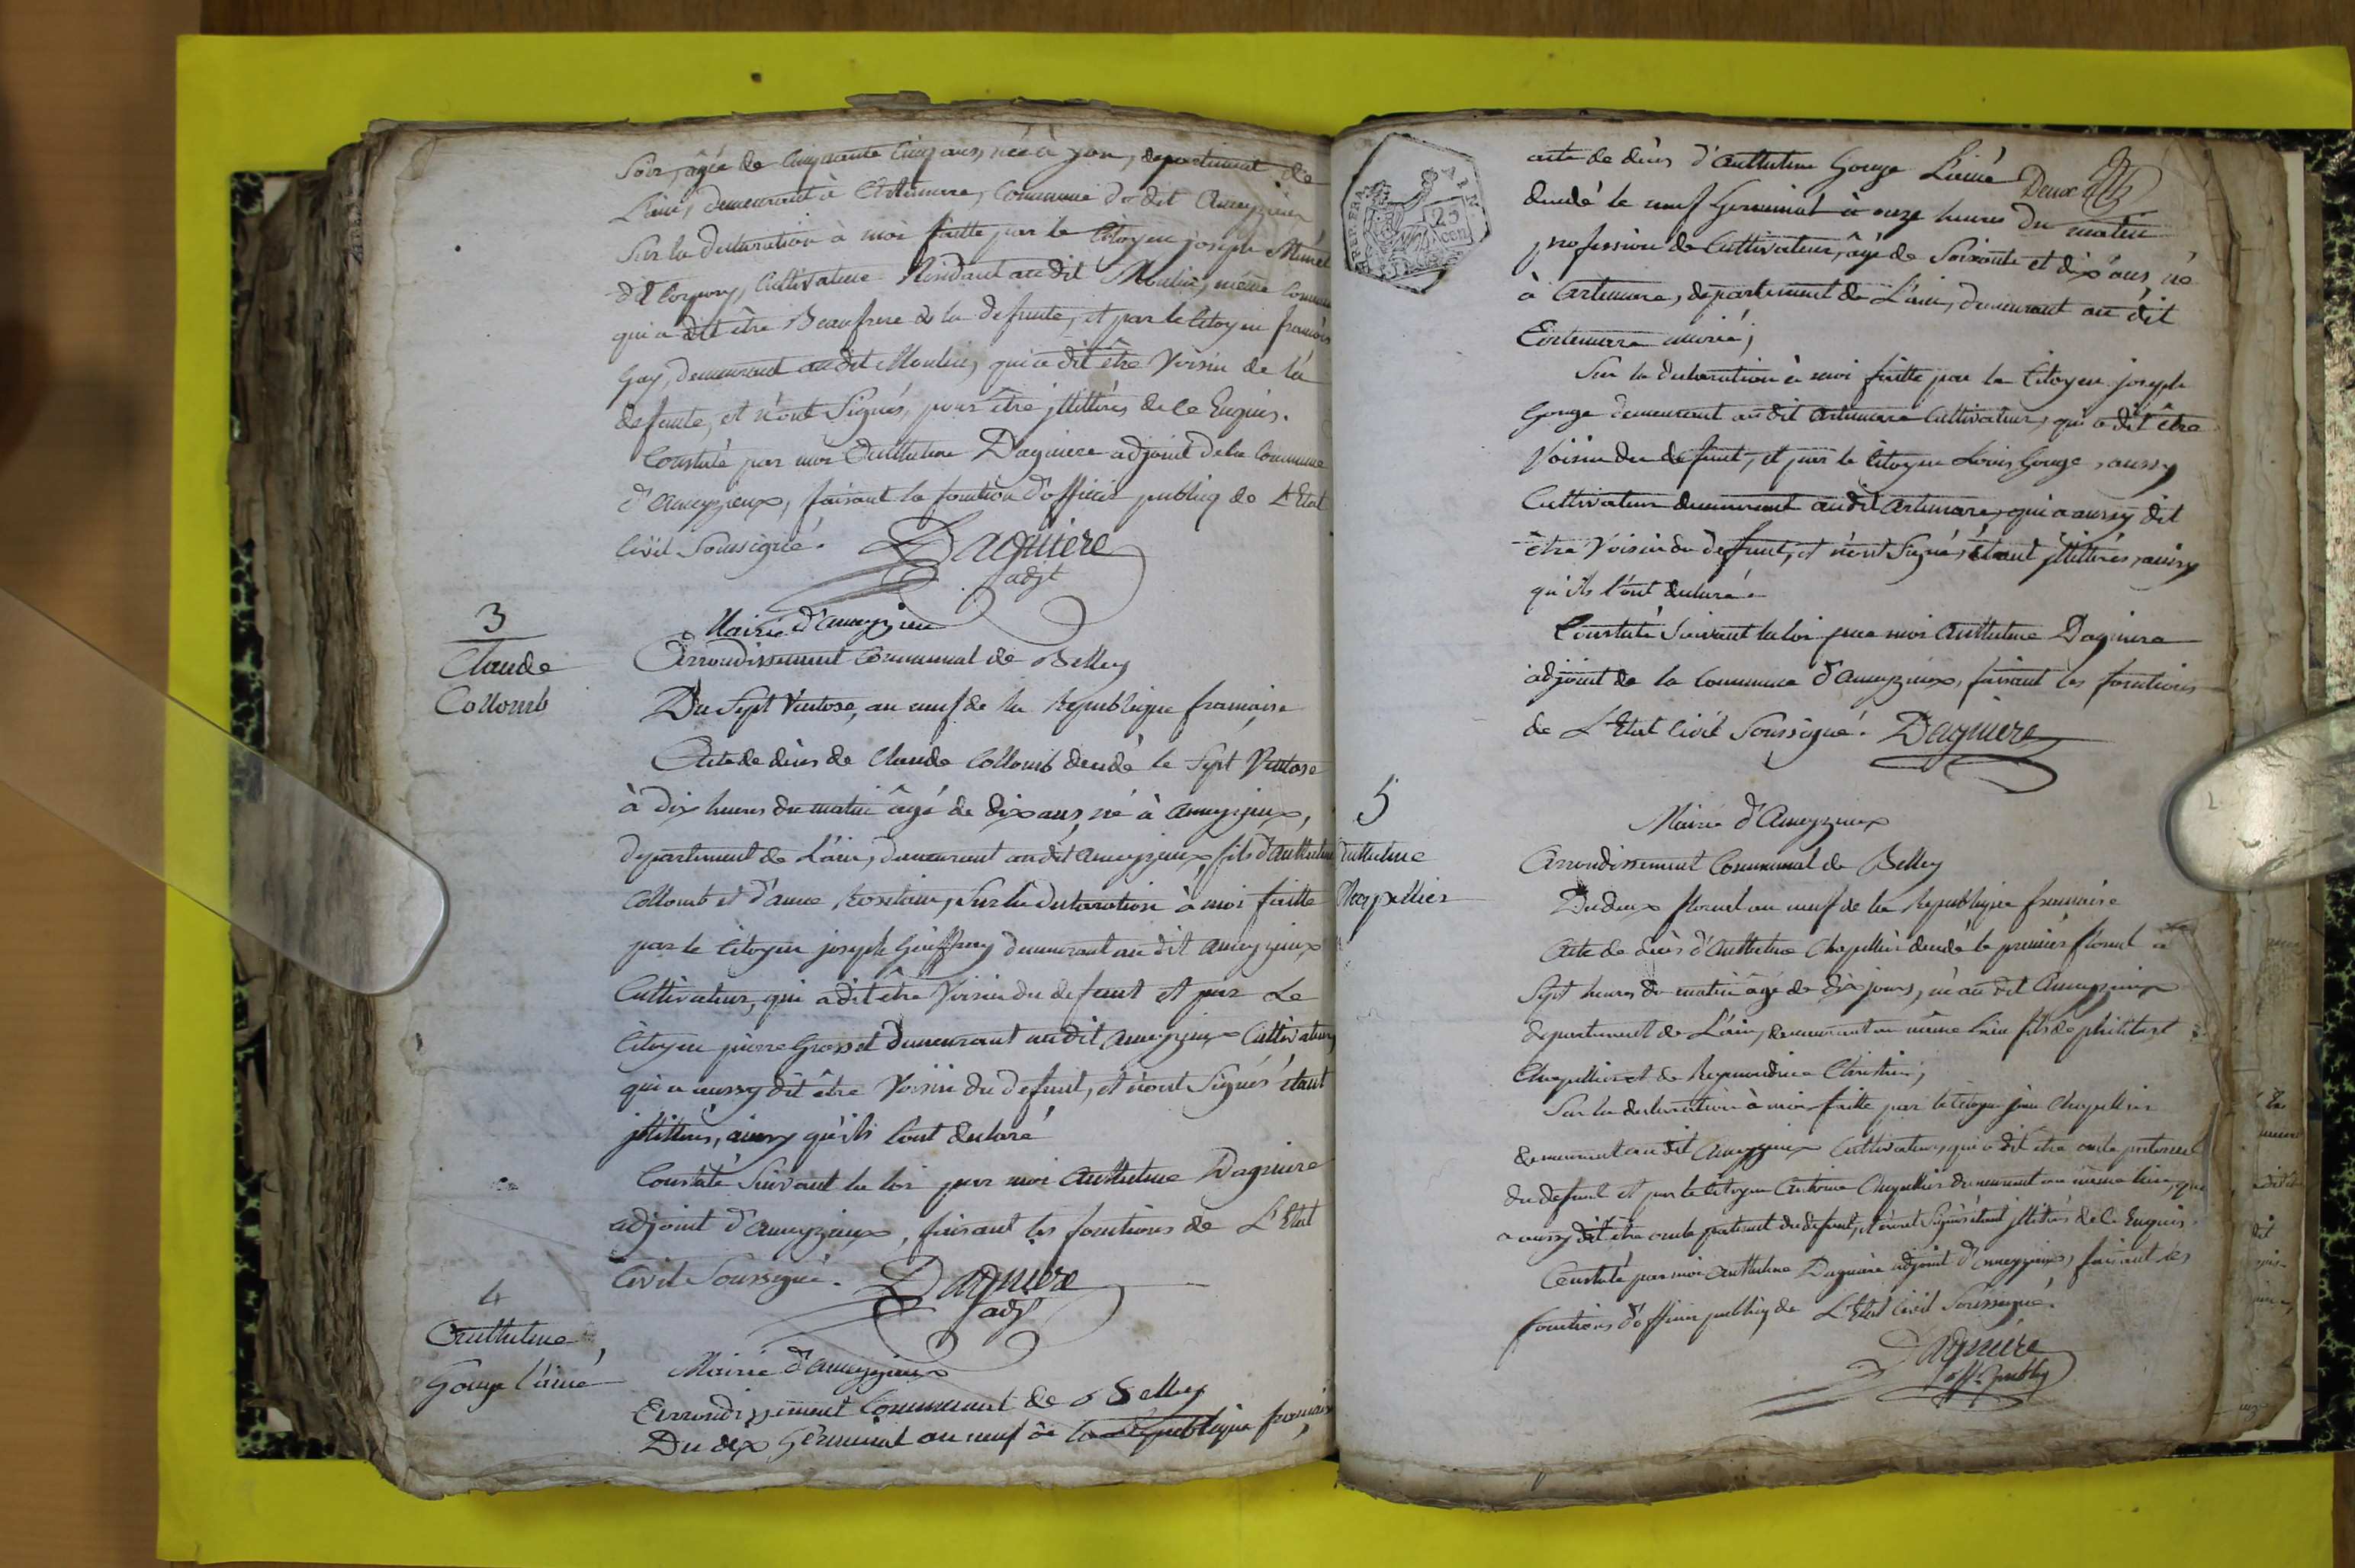 Soir, agée de Cinquante Cinq ans, née à yon, departement de
L'ain, demeurant à Artemare, Commune du dit Ameyzieu
Sur la declaration à moi faitte par le Citoyen joseph
dit Cultivateur Residant au dit Moulin, même Commune
qui a dit être Beaufrere de la defunte, et par le Citoyen francois
Gay, demeurant audit Moulin, qui a dit être Voisin de la
defunte, et n'ont Signés, pour être jllittérés de Ce Enquis.
Constaté par moi Anthelme Dagniere adjoint de la Commune
d'Ameyzieux, faisant la fonction d'officier publiq de L'Etat
Civil Soussigné. Dagniere
adjt
3
Claude
Collomb
Mairie d'ameyzieu
Arrondissement Communal de Belley
Du Sept Ventose, an neuf de la Republique francaise
Acte de décès de Claude Collomb decedé le Sept Ventose
à dix heures du matin âgé de dix ans, né à Ameyzieux,
departement de L'ain, demeurant au dit Ameyzieux, fils d'Anthelme
Collomb et d'anne Rostain, Sur la declaration à moi faitte
par le Citoyen joseph Geuffrey demeurant au dit Ameyzieux
Cultivateur, qui a dit être Voisin du defunt et par Le
Citoyen pierre Grosset demeurant au dit Ameyzieux Cultivateur
qui a aussy dit être Voisin du defunt, et n'ont Signés étant
jllittérés, ainsy qu'ils l'ont declaré
Constaté Suivant la loi par moi Anthelme Dagniere
adjoint d'ameyzieux, faisant les fonctions de L'Etat
Civil Soussigné. Dagniere
adjt
4
Anthelme
Gouge l'ainé
Mairie d'ameyzieux
Arrondissement Communal de Belley
Du dix Germinal an neuf de la Republique francaise
REP. FRA.
25
cen
acte de décès d'Anthelme Gouge L'ainé Deux
decedé le neuf Germinal à onze heures du matin
profession de Cultivateur, âgé de Soixante et dix ans, né
à Artemare, departement de L'ain, demeurant au dit
Artemare marié;
Sur la declaration à moi faitte par le Citoyen joseph
Gouge demeurant au dit Artemare Cultivateur, qui a dit être
Voisin du defunt, et par le Citoyen Louis Gouge, aussy
Cultivateur demeurant au dit Artemare, qui a aussy dit
être Voisin du defunt, et n'ont Signé, étant jllittérés, ainsy
qu'ils l'ont declaré.
Constaté Suivant la loi par moi Anthelme Dagniere
adjoint de la Commune d'Ameyzieux, faisant les fonctions
de L'Etat Civil Soussigné. Dagniere
5
Anthelme
Chapellier
Mairie d'Ameyzieux
Arrondissement Communal de Belley
Du deux floreal an neuf de la Republique francaise
Acte de décès d'Anthelme Chapellier decedé le premier floreal à
Sept heures du matin âgé de dix jours, né au dit Ameyzieux
departement de L'ain, demeurant au même lieu fils de philibert
Chapellier et de Reymondine Christin;
Sur la declaration à moi faitte par le Citoyen jean Chapellier
demeurant au dit Ameyzieux Cultivateur, qui a dit être oncle paternel
du defunt et par le Citoyen Antoine Chapellier demeurant au même lieu, qui
a aussy dit être oncle paternel du defunt, et n'ont Signés étant jllitérés de Ce Enquis.
Constaté par moi Anthelme Dagniere adjoint d'ameyzieux, faisant les
fonctions d'officier publiq de L'Etat Civil Soussigné.
Dagniere
off. publiq